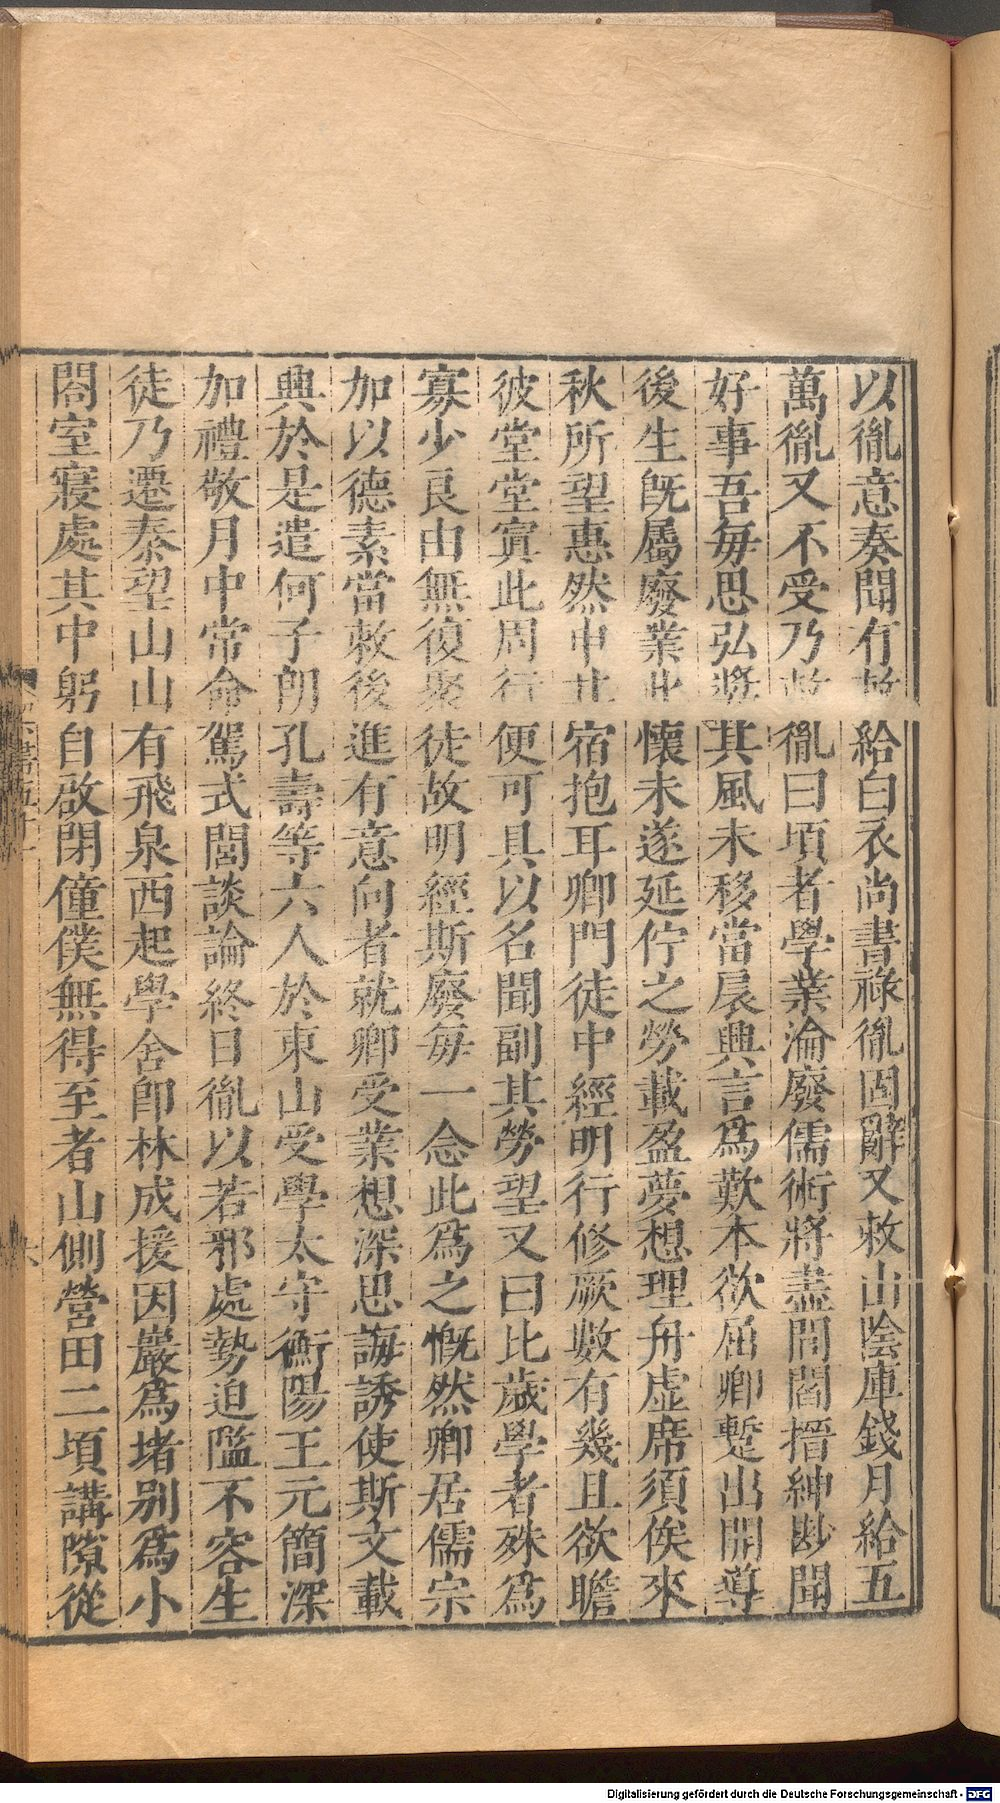 以徹意奏聞有敕給白衣尚書祿胤固辭又敕山陰庫錢月給五
萬胤又不受乃敕胤曰頃者學業淪廢儒術將盡閭閻搢紳尠聞
好事吾每思弘獎其風未移當扆興言爲歎本欲屈卿蹔出開導
後生旣屬廢業此懷未遂延佇之勞載盈夢想理舟虛席須俟來
秋所望惠然申其宿抱耳卿門徒中經明行修厥數有幾且欲瞻
彼堂堂寘此周行便可具以名聞副其勞望又曰比歲學者殊爲
寡少良由無復聚徒故明經斯廢每一念此爲之慨然卿居儒宗
加以德素當敕後進有意向者就卿受業想深思誨誘使斯文載
興於是遣何子朗孔壽等六人於東山受學太守衡陽王元簡深
加禮敬月中常命駕式閭談論終日胤以若邪處勢迫隘不容生
徒乃遷秦望山山有飛泉西起學舍卽林成援因巖爲堵別爲小
閤室寢處其中躬自啟閉僮僕無得至者山側營田二頃講隙從
Digitalisierung gefördert durch die Deutsche Forschungsgemeinschaft - DFG